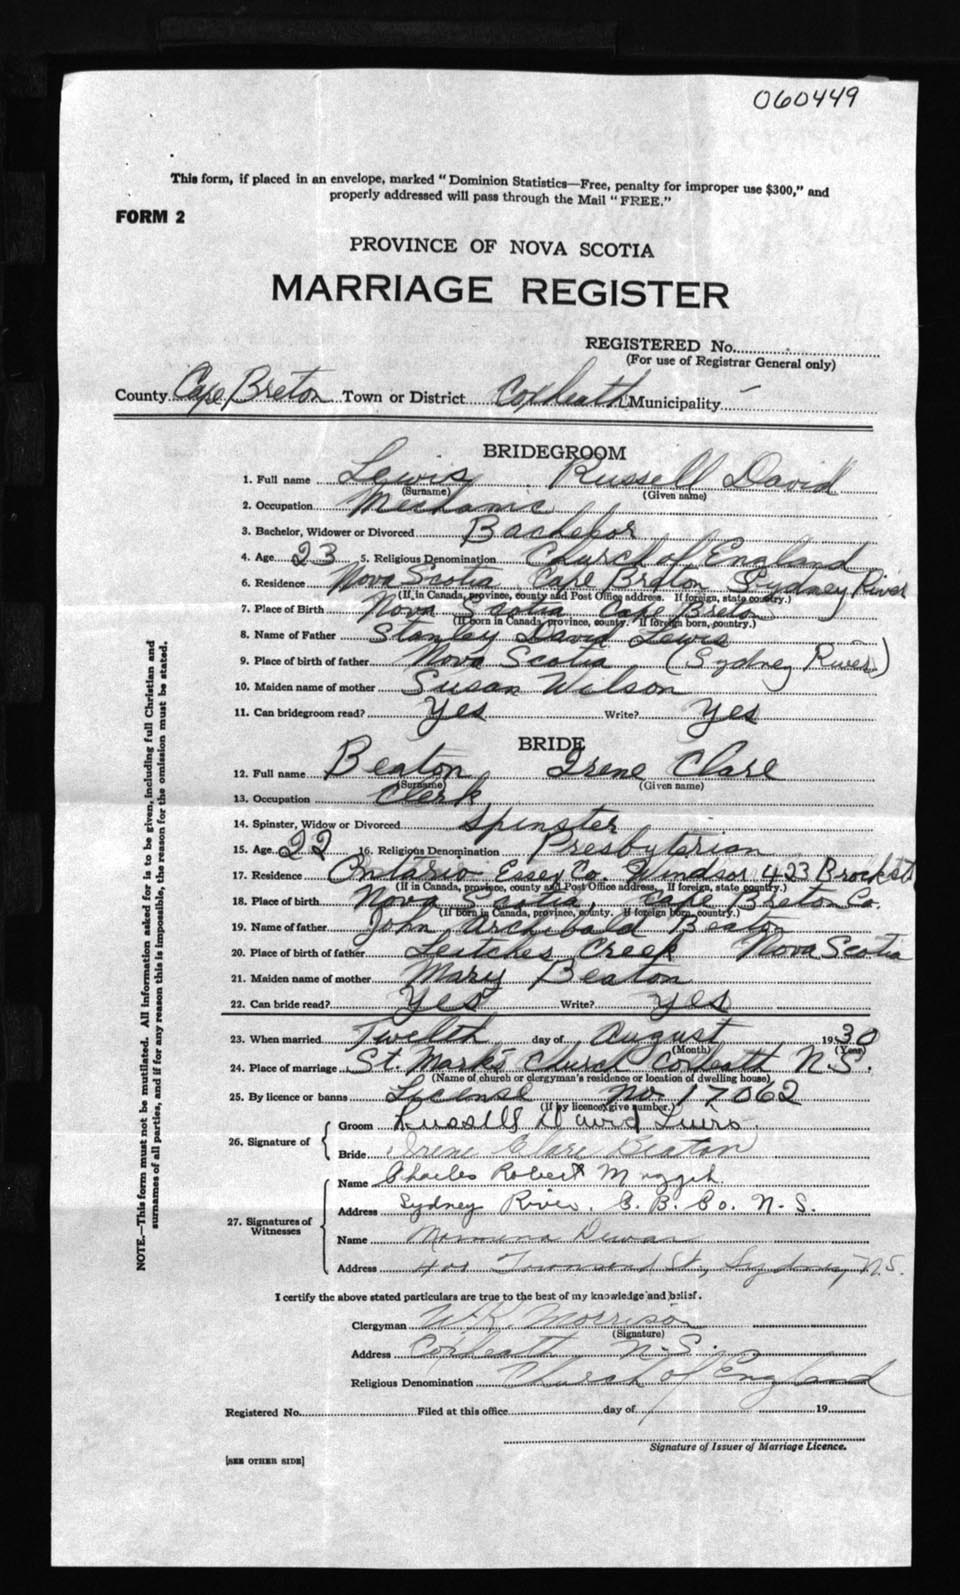 060449
This form, if placed in an envelope, marked "Dominion Statistics—Free, penalty for improper use $300," and
properly addressed will pass through the Mail "FREE."
FORM 2
PROVINCE OF NOVA SCOTIA
MARRIAGE REGISTER
REGISTERED No.
(For use of Registrar General only)
County Cape Breton Town or District Coxheath Municipality —
BRIDEGROOM
1. Full name Lewis Russell David
(Surname) (Given name)
2. Occupation Mechanic
3. Bachelor, Widower or Divorced Bachelor
4. Age 23 5. Religious Denomination Church of England
6. Residence Nova Scotia Cape Breton Sydney River
(If, in Canada, province, county and Post Office address. If foreign, state country.)
7. Place of Birth Nova Scotia Cape Breton
(If born in Canada, province, county. If foreign born, country.)
8. Name of Father Stanley David Lewis
9. Place of birth of father Nova Scotia (Sydney River)
10. Maiden name of mother Susan Wilson
11. Can bridegroom read? Yes Write? Yes
BRIDE
12. Full name Beaton Irene Clare
(Surname) (Given name)
13. Occupation Clerk
14. Spinster, Widow or Divorced Spinster
15. Age 22 16. Religious Denomination Presbyterian
17. Residence Ontario Essex Co. Windsor 423 Brock St
(If in Canada, province, county and Post Office address. If foreign, state country.)
18. Place of birth Nova Scotia, Cape Breton Co.
(If born in Canada, province, county. If foreign born, country.)
19. Name of father John Archibald Beaton
20. Place of birth of father Leitches Creek Nova Scotia
21. Maiden name of mother Mary Beaton
22. Can bride read? Yes Write? yes
23. When married Twelth day of August 1930
(Month) (Year)
24. Place of marriage St. Mark's Church Coxheath N.S.
(Name of church or clergyman's residence or location of dwelling house)
25. By licence or banns License No. 17062
(If by licence, give number.)
26. Signature of
Groom Russell David Lewis
Bride Irene Clare Beaton
27. Signatures of Witnesses
Name Charles Robert Muggah
Address Sydney River, C. B. Co. N. S.
Name Dewar
Address 400 Townsend St, Sydney N.S.
I certify the above stated particulars are true to the best of my knowledge and belief.
Clergyman W.K. Morrison
(Signature)
Address Coxheath N. S.
Religious Denomination Church of England
Registered No. Filed at this office day of 19
Signature of Issuer of Marriage Licence.
[SEE OTHER SIDE]
NOTE.—This form must not be mutilated. All information asked for is to be given, including full Christian and
surnames of all parties, and if for any reason this is impossible, the reason for the omission must be stated.